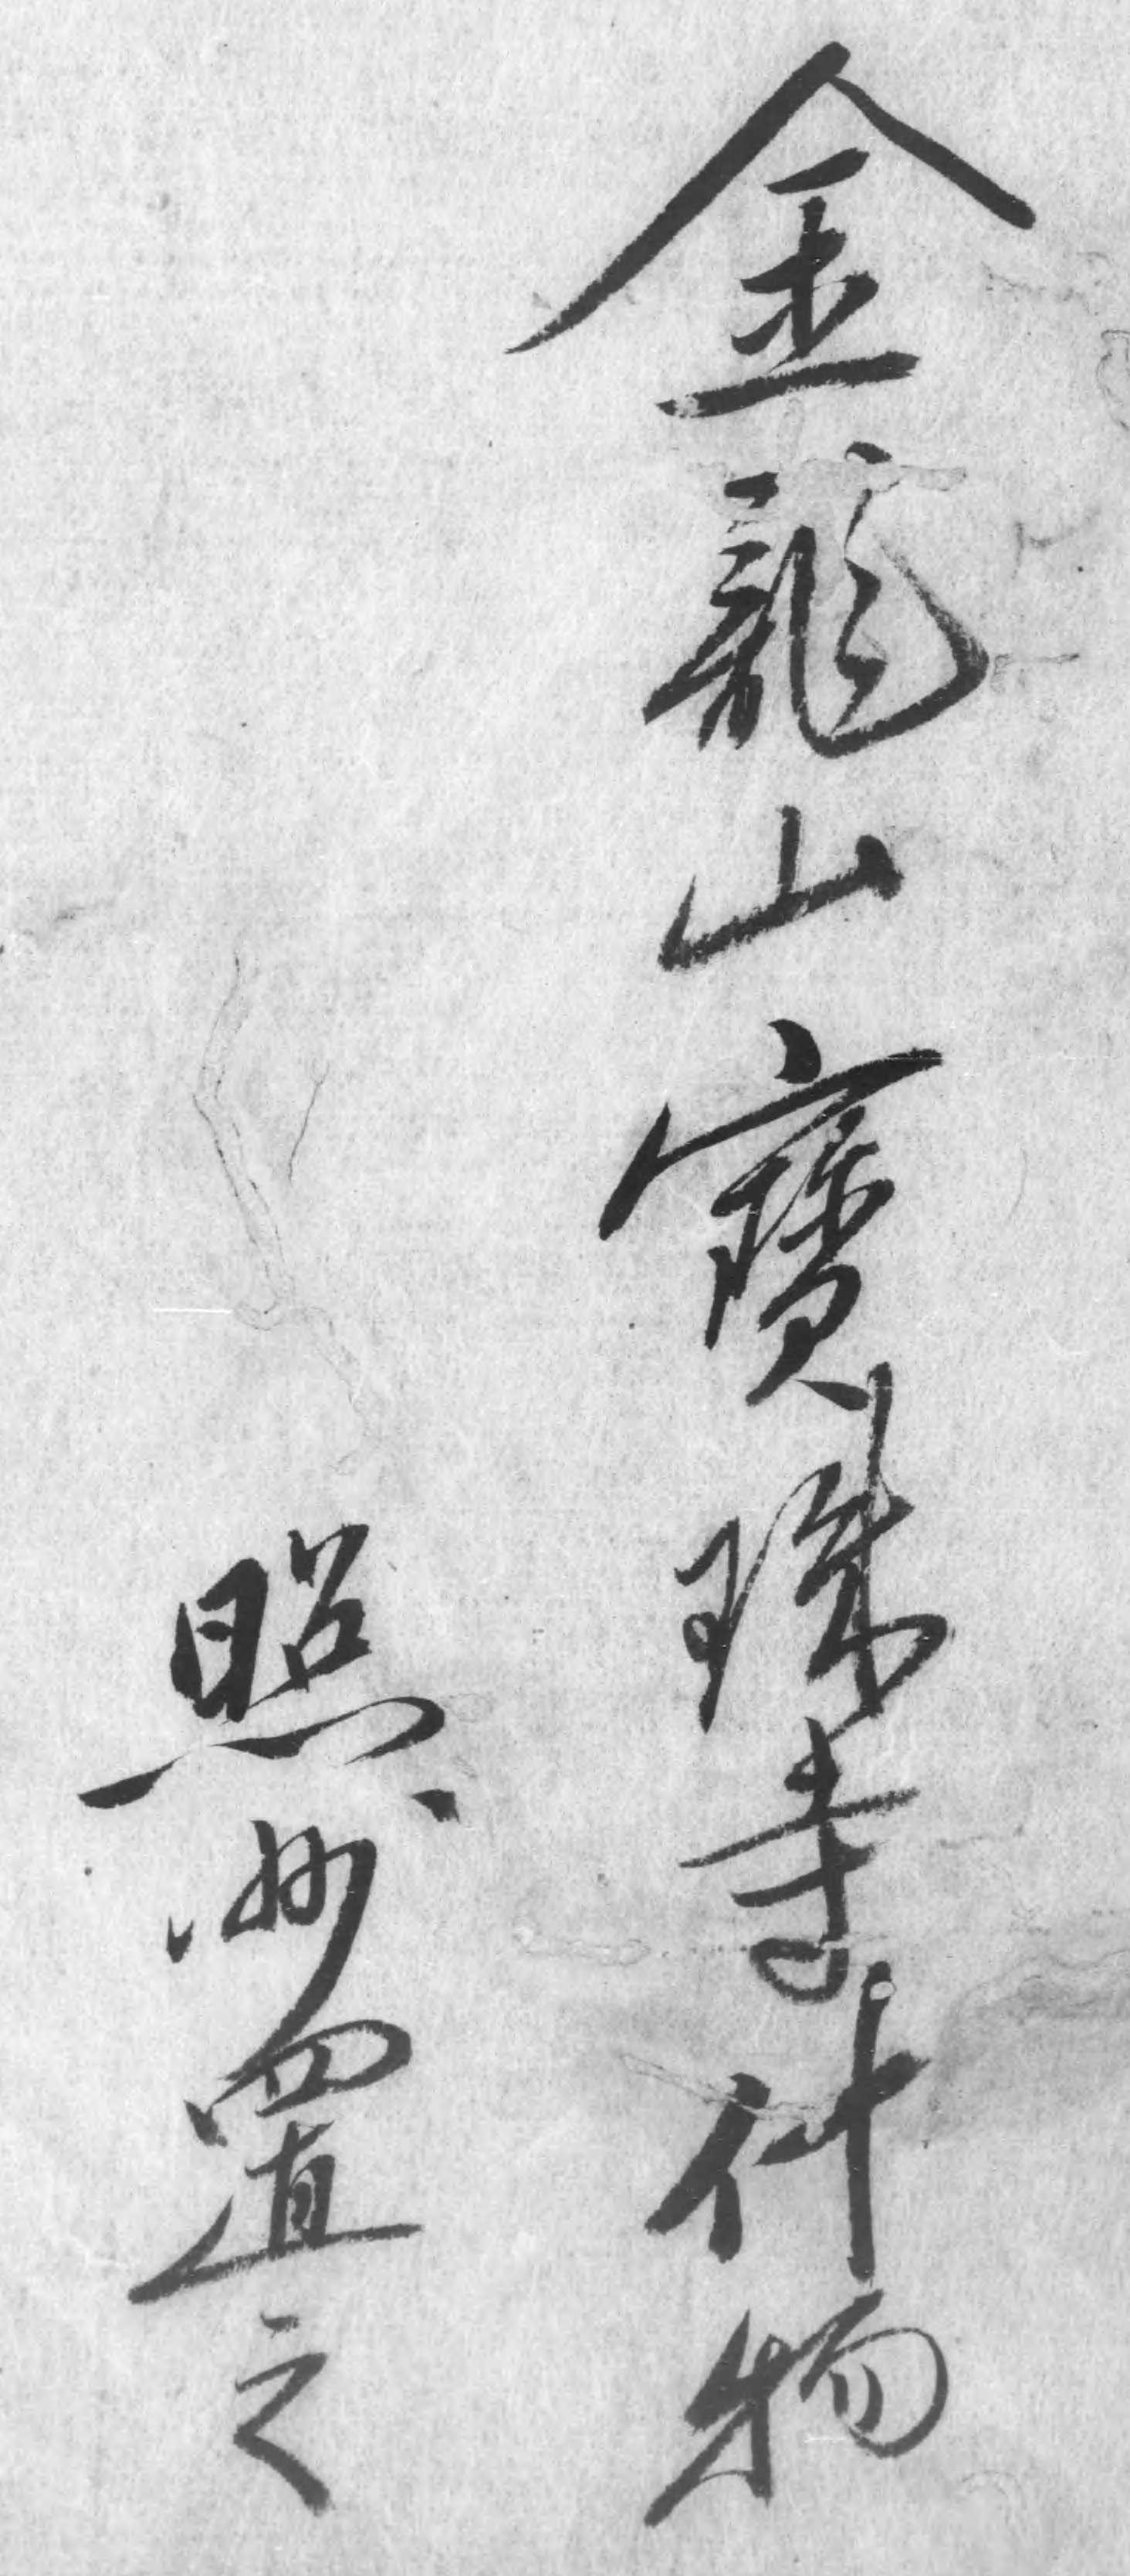 金龍山寶珠寺什物
照妙置之